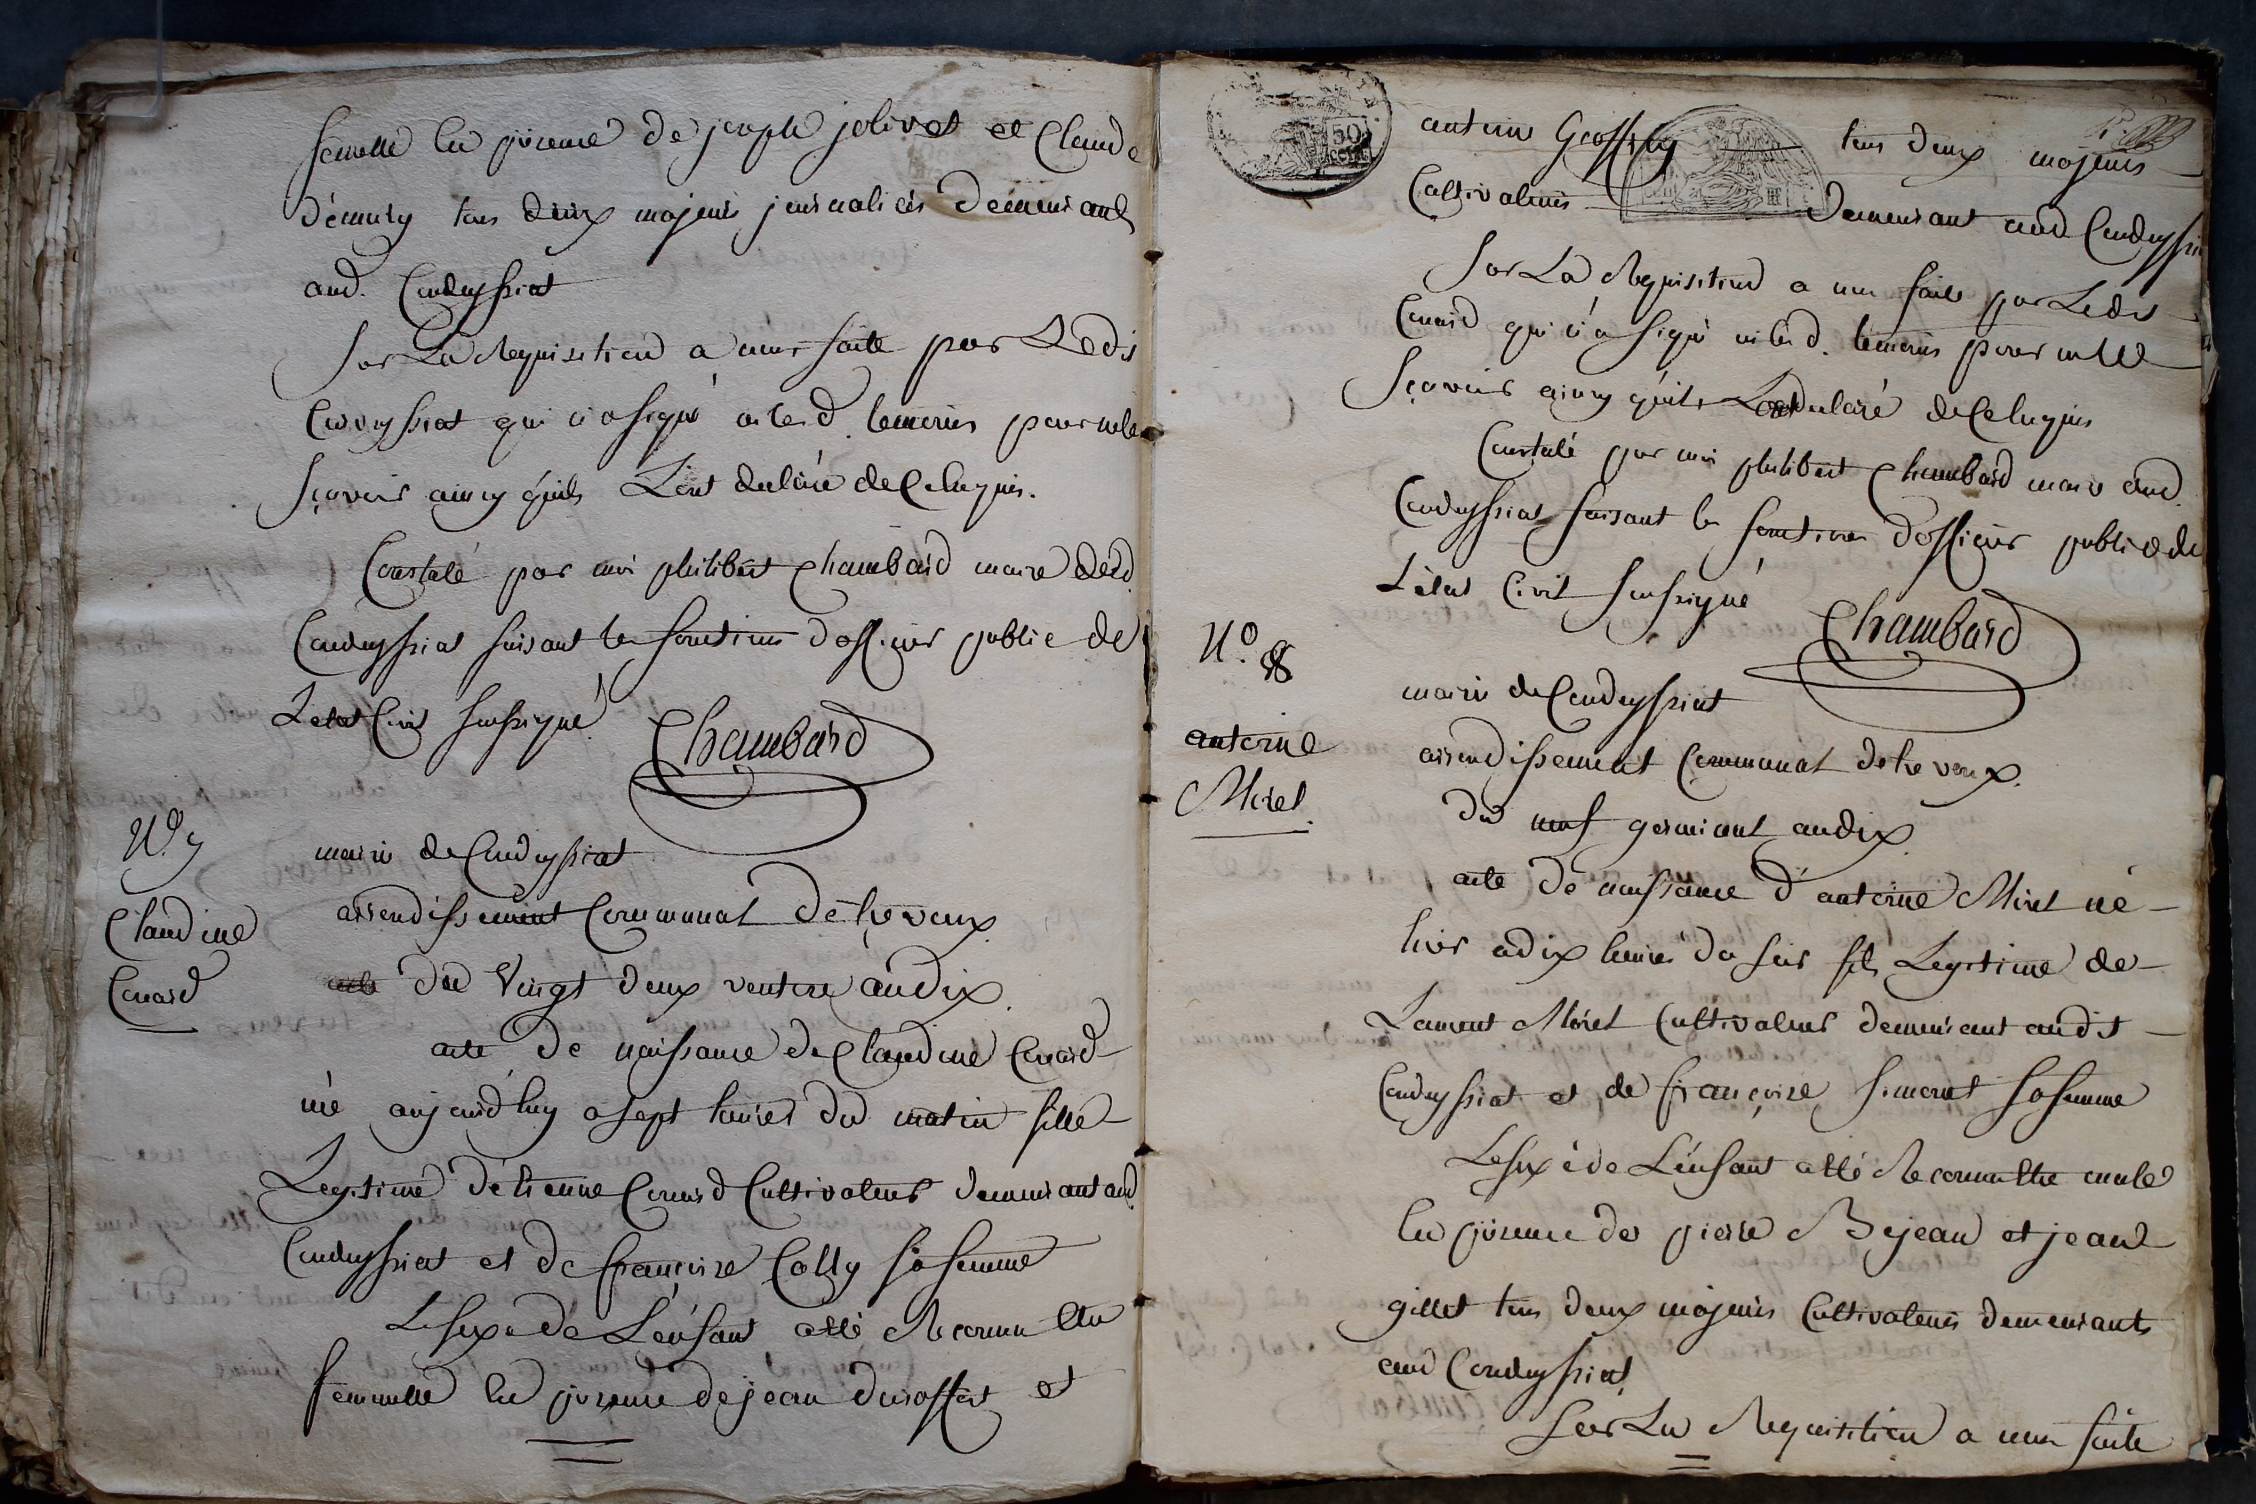 femelle en présence de joseph jolivet et Claude
démurly tous deux majeurs journaliers demeurants
aud. Condeyssiat
Sur La Requisition a nous faite par Ledit
Cordeyssiat qui n'a signé ni lesd. temoins pour ne le
sçavoir ainsy qu'ils L'ont declaré de Ce Enquis.
Constaté par moi philibert Chambard maire dud
Condeyssiat faisant les fonctions d'officier public de
L'etat Civil Soussigné
Chambard
N.º 7
Claudine
Conard
mairie de Condeyssiat
arrondissement Communal de trevoux
du Vingt deux ventose an dix.
acte de naissance de Claudine Conard
né aujourd'huy a sept heures du matin fille
Legitime d'etienne Conard Cultivateur demeurant aud
Condeyssiat et de françoise Colly sa femme
Le sexe de L'enfant a été Reconnu Etre
femmelle en présence de jean durosset et
50
cent
antoine Geoffray tous deux majeurs
Cultivateurs demeurant aud Condeyssiat
Sur La Requisition a nous faite par Ledit
Conard qui n'a signé ni les d. temoins pour ne le
sçavoir ainsy qu'ils L'ont declaré de Ce Enquis
Constaté par moi philibert Chambard maire dud
Condeyssiat faisant les fonctions d'officier public de
L'etat Civil Soussigné
Chambard
N.º 8
antoine
Morel.
mairie de Condeyssiat
arrondissement Communal de trevoux.
du neuf germinal an dix
acte de naissance d'antoine Morel né
hier a dix heures du soir fils Legitime de
Laurent Morel Cultivateur demeurant audit
Condeyssiat et de françoise simonet sa femme
Le sexe de L'enfant a été Reconnu Etre male
En présence de pierre Bejean et jean
gillet tous deux majeurs Cultivateurs demeurants
aud Condeyssiat
Sur La Requisition a nous faite